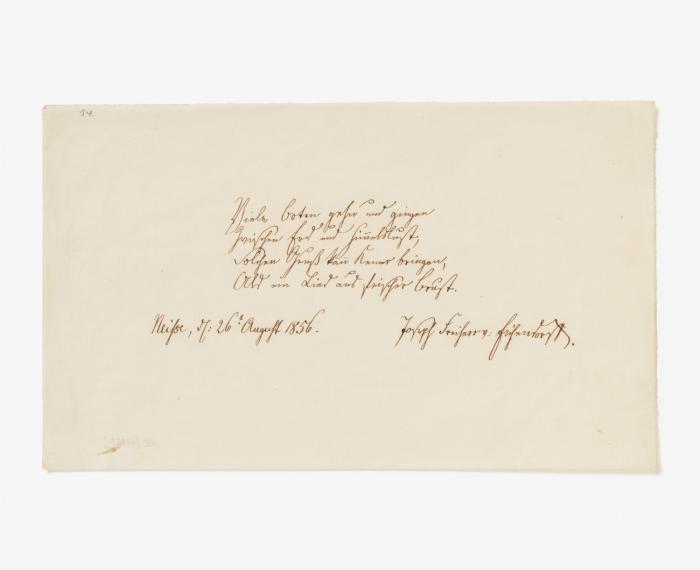 34.
Viele Boten gehen und gingen
Zwischen Erd und Him̄elslust,
Solchen Gruß kan̄ Keiner bringen,
Als ein Lied aus frischer Brust.
Neiße, d: 26t August 1856. Joseph Freiherr v: Eichendorff.